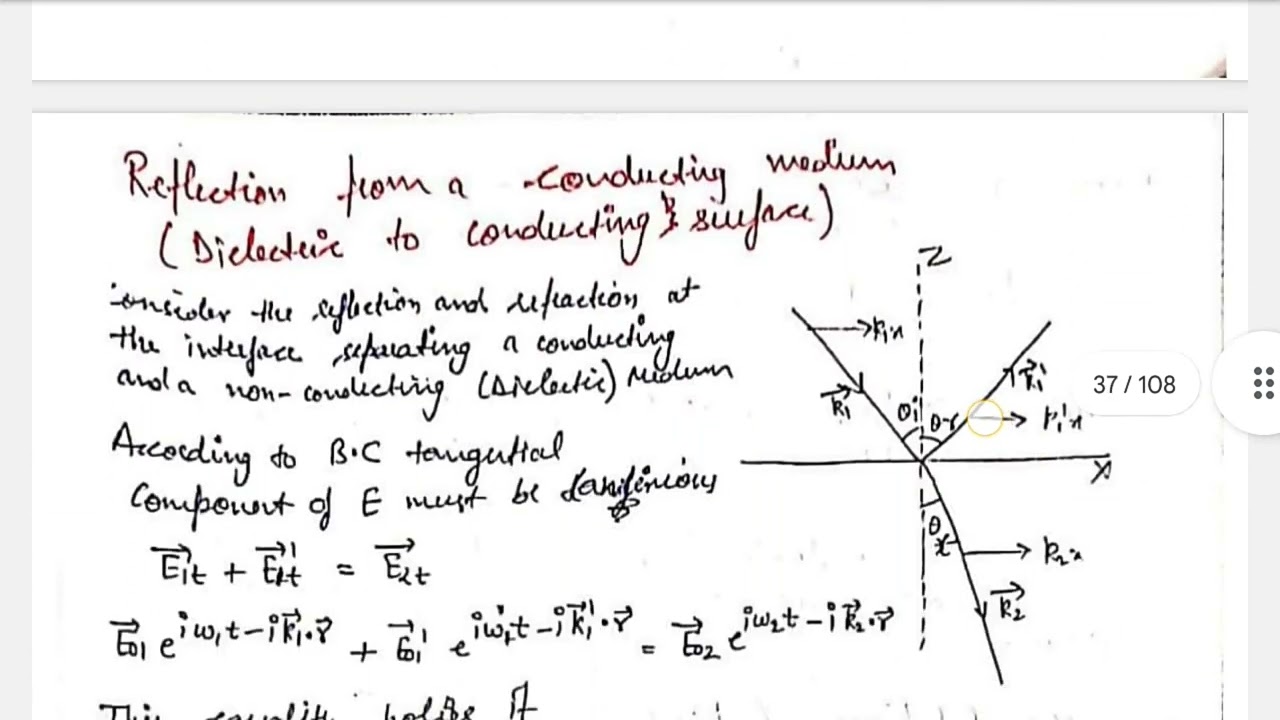 Reflection from a conducting medium
(Dielectric to conducting surface)
onsider the reflection and refraction at
the interface separating a conducting
and a non-conducting (Dielectic) Medium
According to B.C tangential
Component of E must be
E⃗1t + E⃗'1t = E⃗2t
E⃗01 e^{iω1t-ik⃗1·r⃗} + E⃗'01 e^{iω'1t-ik⃗'1·r⃗} = E⃗02 e^{iω2t-ik⃗2·r⃗}
This equality holds if
Z
k1x
k⃗1
θi
θr
k⃗'1
k'1x
X
θt
k2x
k⃗2
37 / 108